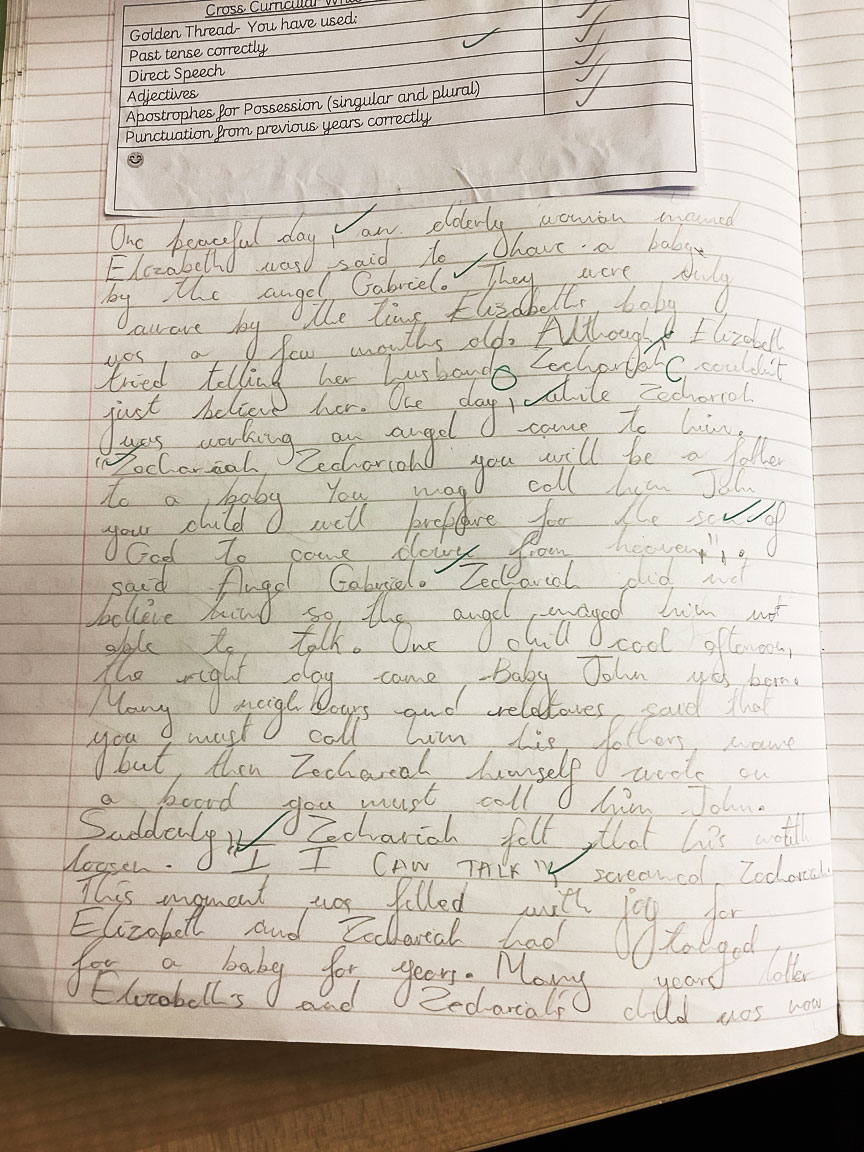 Cross Curricular
Golden Thread- You have used:
Past tense correctly
Direct Speech
Adjectives
Apostrophes for Possession (singular and plural)
Punctuation from previous years correctly
One peaceful day, an elderly woman named
Elizabeth was said to have a baby
by the angel Gabriel. They were
aware by the time Elizabeths baby
was a few months old. Although Elizabeth
tried telling her husband Zechariah couldn't
just believe her. One day, while Zechariah
was working an angel came to him.
"Zechariah, Zechariah you will be a father
to a baby You may call him John
your child will prepare for the son of
God to come down from heaven",
said Angel Gabriel. Zechariah did not
believe him so the angel mayed him not
able to talk. One chill cool afternoon,
the right day came Baby John was born.
Many neighbours and relataves said that
you must call him his fathers name
but then Zechareah himself wrote on
a board you must call him John.
Suddenly, Zechariah felt that his
loosen. "I I CAN TALK", screamed Zechareah.
This moment was filled with joy for
Elizabeth and Zechareah had
for a baby for years. Many years latter
Elizabeth's and Zechariah's child was now